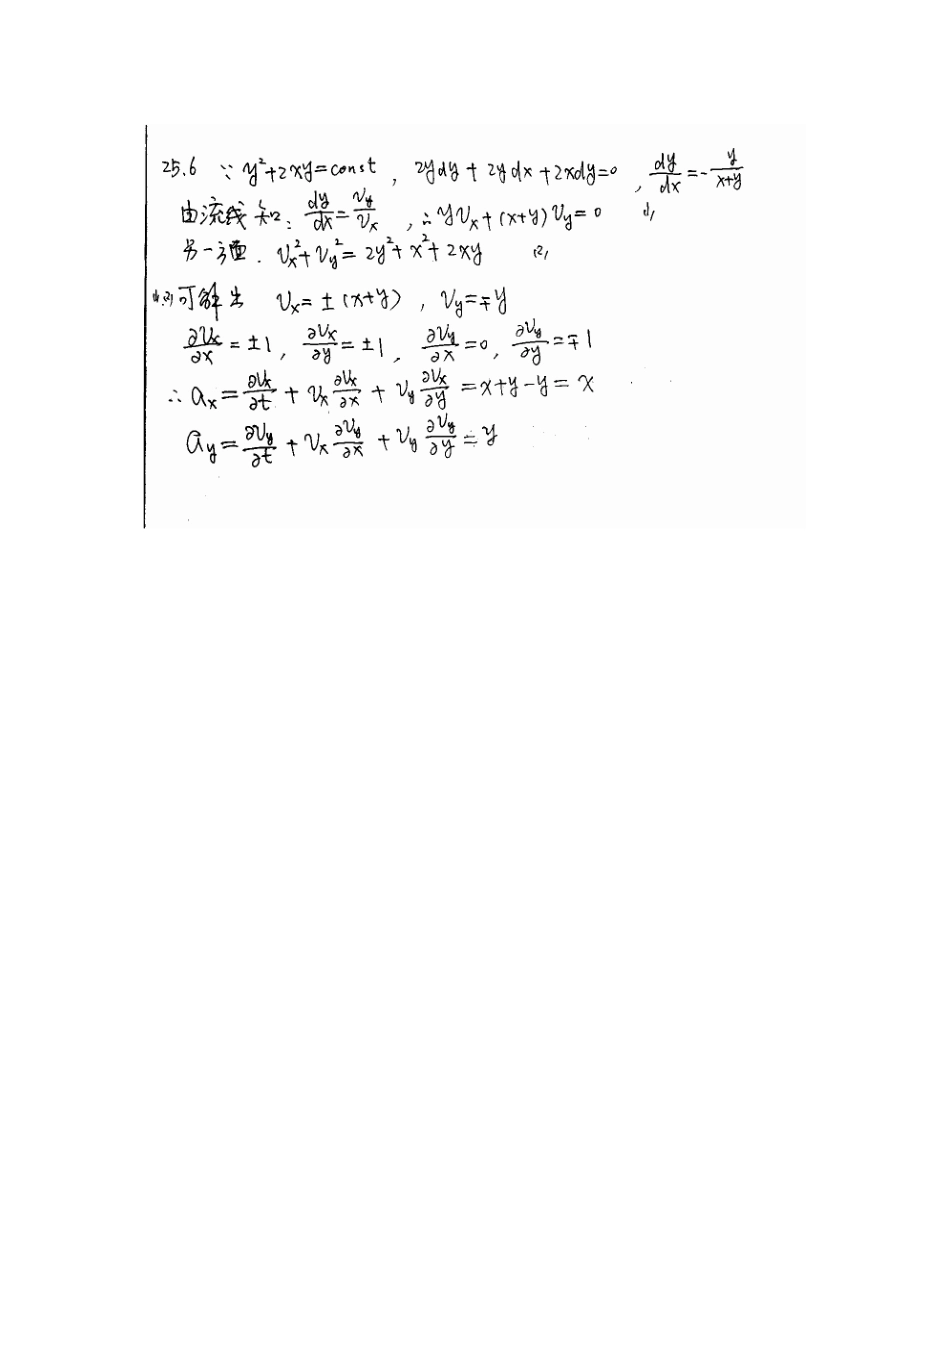 25.6 ∵ y²+2xy=const , 2ydy + 2ydx +2xdy=0 , dy/dx = -y/(x+y)
由流线知: dy/dx = Vy/Vx , ∴ yVx + (x+y)Vy = 0 (1)
另一方面. Vx²+Vy² = 2y²+x²+2xy (2)
(1),(2)可解出 Vx = ±(x+y) , Vy = ∓y
∂Vx/∂x = ±1 , ∂Vx/∂y = ±1 , ∂Vy/∂x = 0 , ∂Vy/∂y = ∓1
∴ ax = ∂Vx/∂t + Vx ∂Vx/∂x + Vy ∂Vx/∂y = x+y-y = x
ay = ∂Vy/∂t + Vx ∂Vy/∂x + Vy ∂Vy/∂y = y